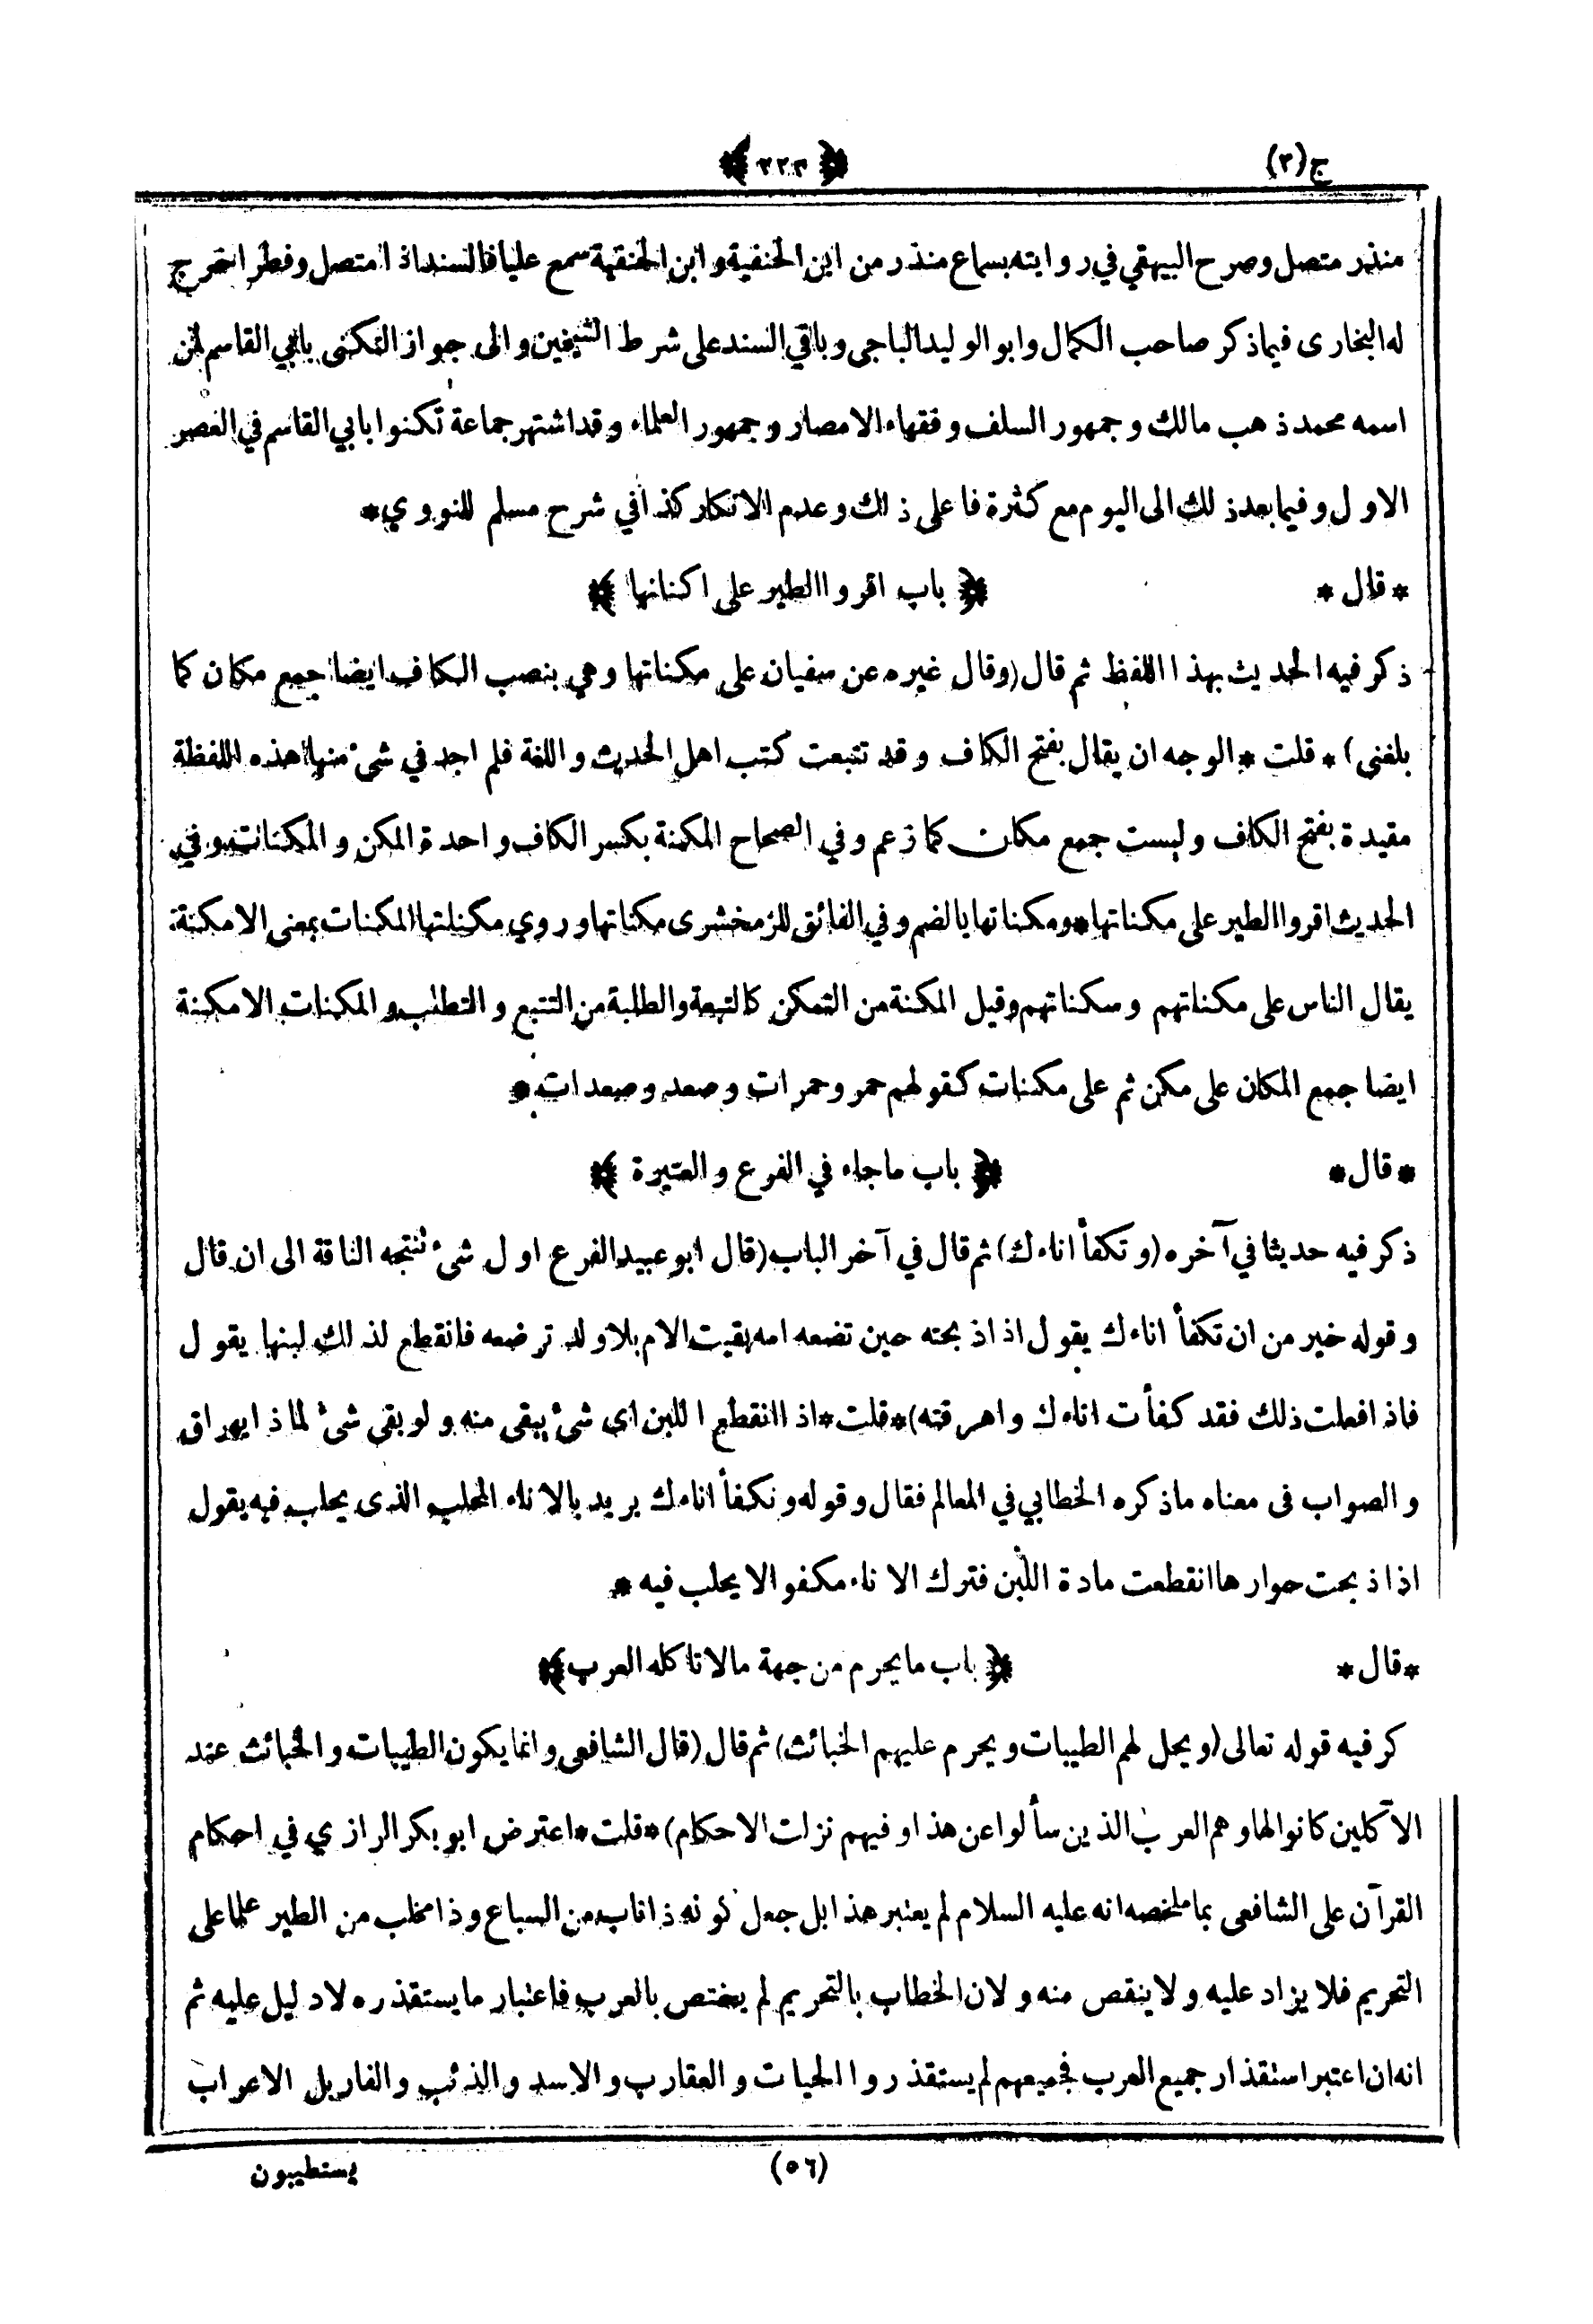 ج(٢) ﴿ ٢٢٣ ﴾
منذر متصل وصرح البيهقي في روايته بسماع منذر من ابن الحنفية وابن الحنفية سمع عليا فالسند اذا متصل وفطر اخرج
له البخارى فيما ذكر صاحب الكمال وابو الوليد الباجى وباقي السند على شرط الشيخين والى جواز التكنى بابي القاسم لمن
اسمه محمد ذهب مالك وجمهور السلف وفقهاء الامصار وجمهور العلماء وقد اشتهر جماعة تكنوا بابي القاسم في العصر
الاول وفيما بعد ذلك الى اليوم مع كثرة فاعلى ذلك وعدم الانكار كذا في شرح مسلم للنووي *
* قال * ﴿ باب اقروا الطير على اكنانها ﴾
ذكر فيه الحديث بهذا اللفظ ثم قال (وقال غيره عن سفيان على مكناتها وهي بنصب الكاف ايضا جمع مكان كما
بلغنى) * قلت * الوجه ان يقال بفتح الكاف وقد تتبعت كتب اهل الحديث واللغة فلم اجد في شئ منها هذه اللفظة
مقيدة بفتح الكاف وليست جمع مكان كما زعم وفي الصحاح المكنة بكسر الكاف واحدة المكن والمكنات وفي
الحديث اقروا الطير على مكناتها * ومكناتها بالضم وفي الفائق للزمخشرى مكناتها وروي مكناتها المكنات بمعنى الامكنة
يقال الناس على مكناتهم وسكناتهم وقيل المكنة من التمكن كالتبعة والطلبة من التتبع والتطلب والمكنات الامكنة
ايضا جمع المكان على مكن ثم على مكنات كقولهم حمر وحمرات وصعد وصعدات *
* قال * ﴿ باب ما جاء في الفرع والعتيرة ﴾
ذكر فيه حديثا في آخره (وتكفأ اناءك) ثم قال في آخر الباب (قال ابو عبيد الفرع اول شئ تنتجه الناقة الى ان قال
وقوله خير من ان تكفأ اناءك يقول اذا ذبحته حين تضعه امه بقيت الام بلا ولد ترضعه فانقطع لذلك لبنها يقول
فاذا فعلت ذلك فقد كفأت اناءك واهرقته) * قلت * اذا انقطع اللبن اى شئ يبقى منه ولو بقى شئ لماذا يهراق
والصواب فى معناه ما ذكره الخطابي في المعالم فقال وقوله ونكفأ اناءك يريد بالاناء المحلب الذى يحلب فيه يقول
اذا ذبحت حوارها انقطعت مادة اللبن فترك الاناء مكفوا لا يحلب فيه *
* قال * ﴿ باب ما يحرم من جهة مالا تاكله العرب ﴾
كر فيه قوله تعالى (ويحل لهم الطيبات ويحرم عليهم الخبائث) ثم قال (قال الشافعى وانما يكون الطيبات والخبائث عند
الآكلين كانوا لها وهم العرب الذين سألوا عن هذا وفيهم نزلت الاحكام) * قلت * اعترض ابو بكر الرازي في احكام
القرآن على الشافعى بما ملخصه انه عليه السلام لم يعتبر هذا بل جعل كونه ذا ناب من السباع وذا مخلب من الطير علما على
التحريم فلا يزاد عليه ولا ينقص منه ولان الخطاب بالتحريم لم يختص بالعرب فاعتبار ما يستقذره لا دليل عليه ثم
انه ان اعتبر استقذار جميع العرب فجميعهم لم يستقذروا الحيات والعقارب والاسد والذئب والفار بل الاعراب
(٥٦) يستطيبون